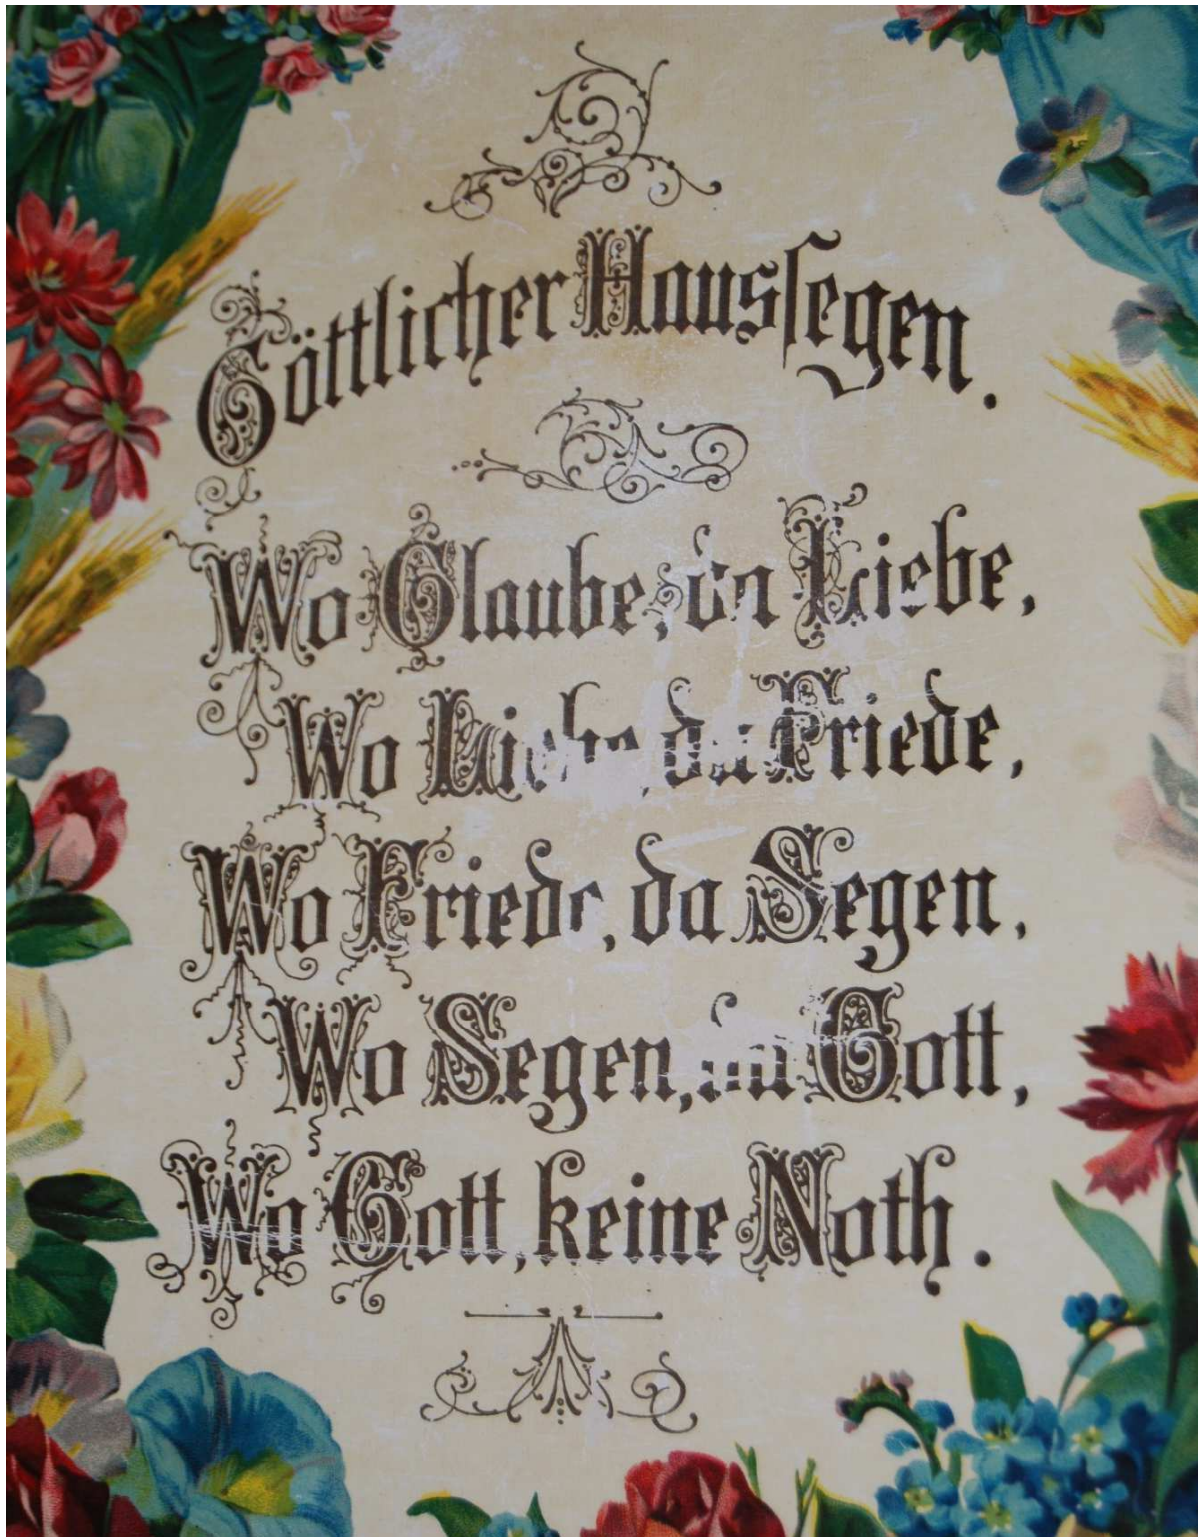 Göttlicher Haussegen.
Wo Glaube, da Liebe,
Wo Liebe, da Friede,
Wo Friede, da Segen,
Wo Segen, da Gott,
Wo Gott, keine Noth.